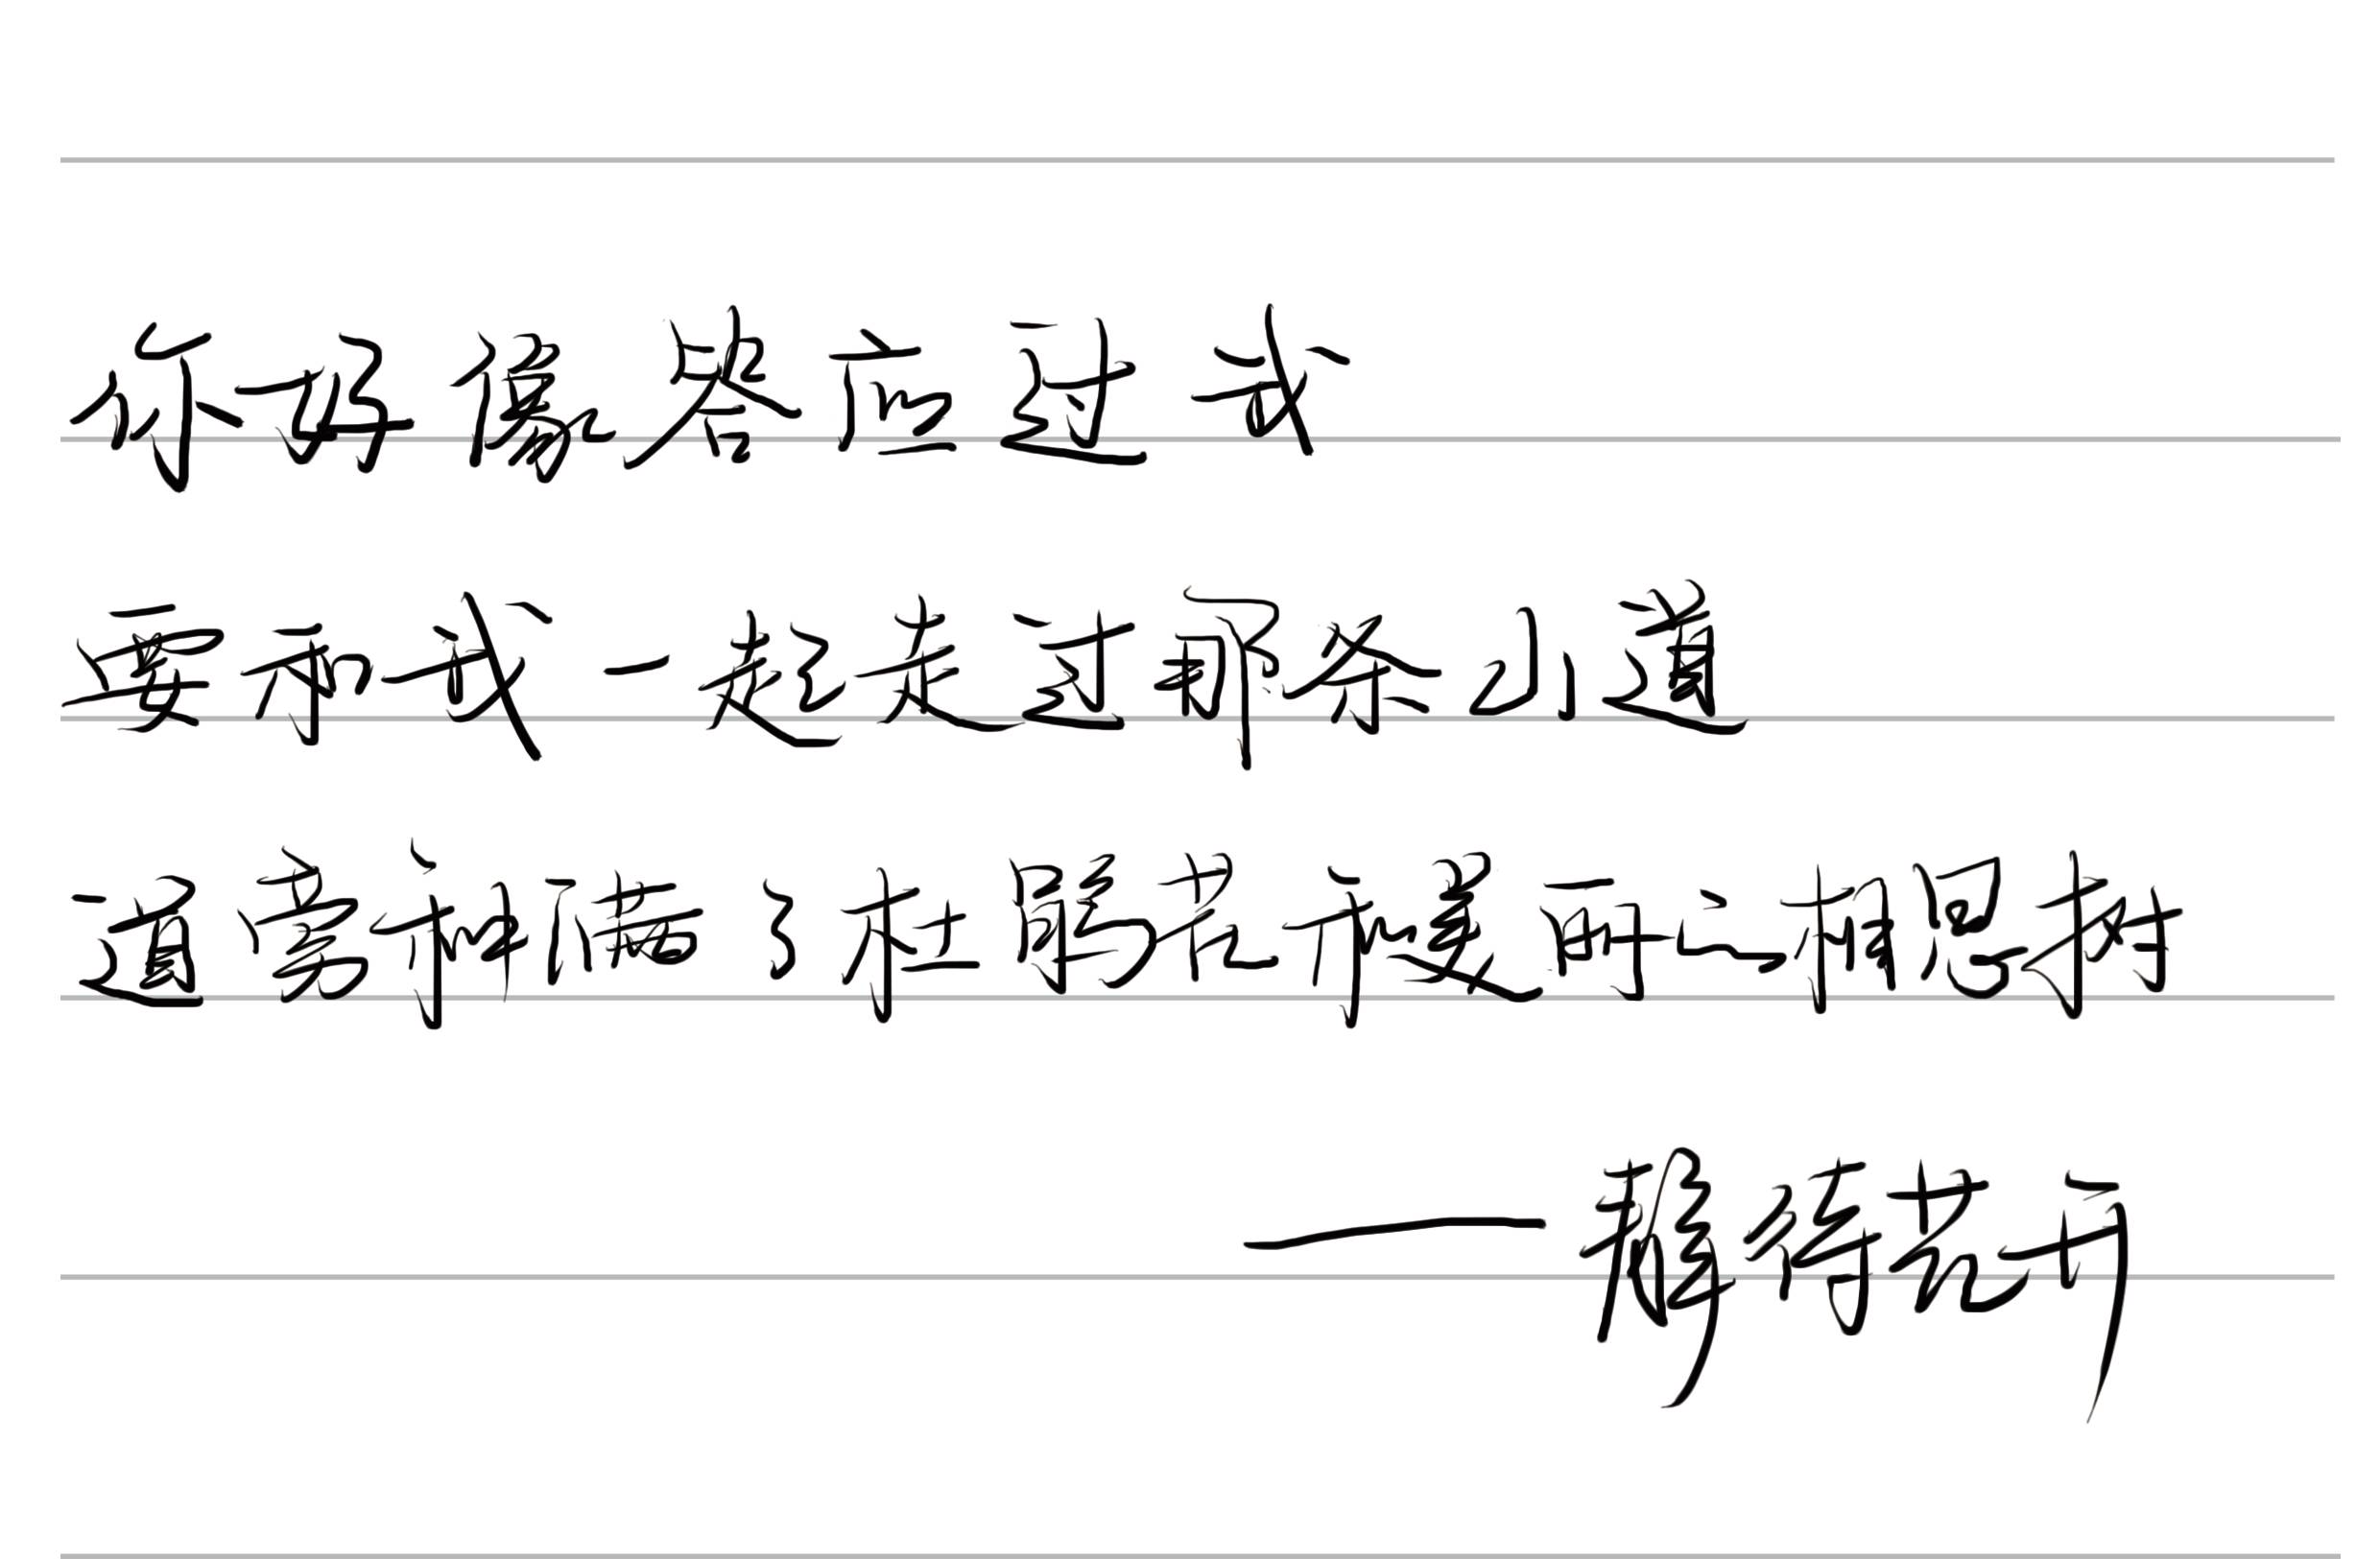 你好像答应过我
要和我一起走过那条山道
道旁种满了杜鹃花和美丽的相思树
——静待花开